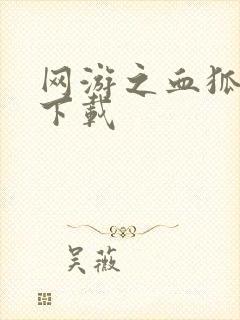 网游之血狐
下载
吴薇